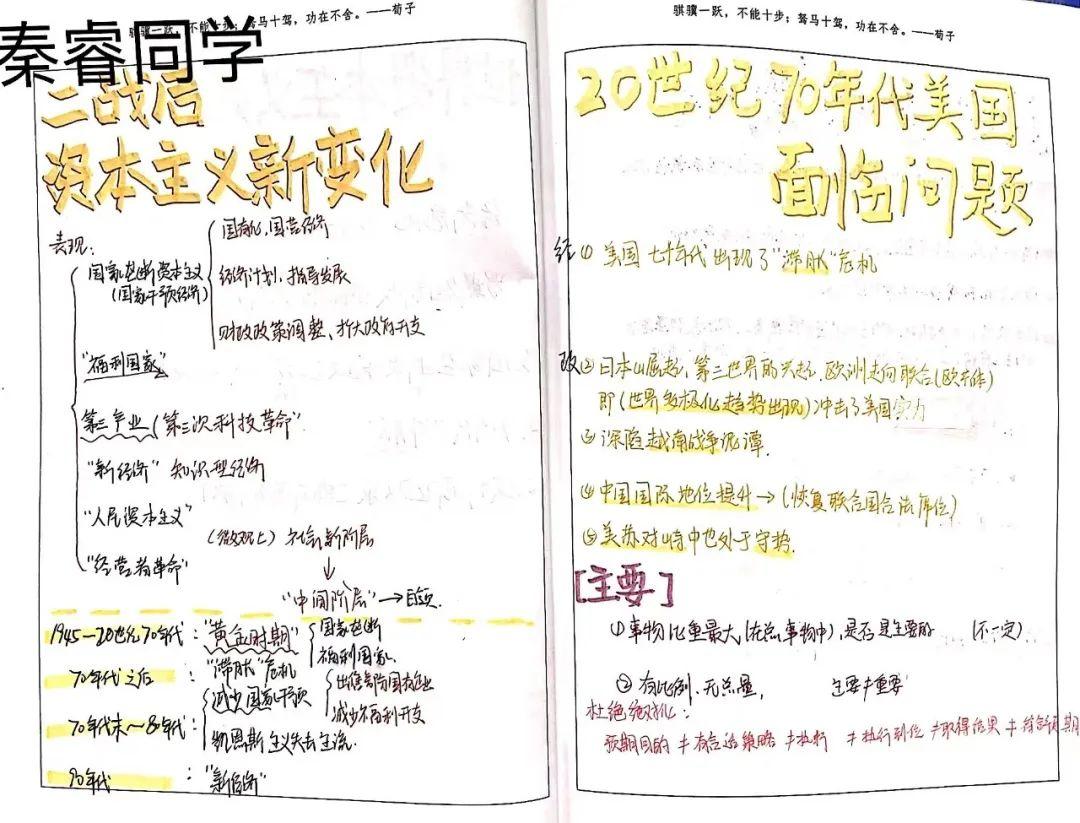 骐骥一跃，不能十步；驽马十驾，功在不舍。——荀子
秦睿同学
二战后
资本主义新变化
表现：
国家垄断资本主义
（国家干预经济）
国有化，国营经济
经济计划，指导发展
财政政策调整、扩大政府开支
"福利国家"
第三产业（第三次科技革命
"新经济" 知识型经济
"人民资本主义"
（微观上）社会新阶层
"经营者革命"
↓
"中间阶层"→
1945—20世纪70年代："黄金时期"
国家垄断
福利国家
70年代之后："滞胀"危机
70年代末～80年代：
减少国家干预
出售部分国有企业
减少福利开支
凯恩斯主义失去主流
90年代："新经济"
骐骥一跃，不能十步；驽马十驾，功在不舍。——荀子
20世纪70年代美国
面临问题
经① 美国七十年代出现了"滞胀"危机
政② 日本崛起，第三世界的兴起，欧洲走向联合（欧共体）
即（世界多极化趋势出现）冲击了美国实力
③ 深陷越南战争泥潭.
④ 中国国际地位提升→（恢复联合国合法席位）
⑤ 美苏对峙中也处于守势.
[主要]
①事物比重最大（在总事物中），是否是主要的（不一定）
② 有比例，无总量， 主要≠重要
杜绝绝对化：
预期目的≠有合适策略≠执行≠执行到位≠取得结果≠符合预期